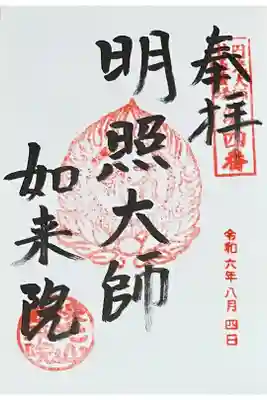 奉拝
明照大師
如来院
令和六年八月四日